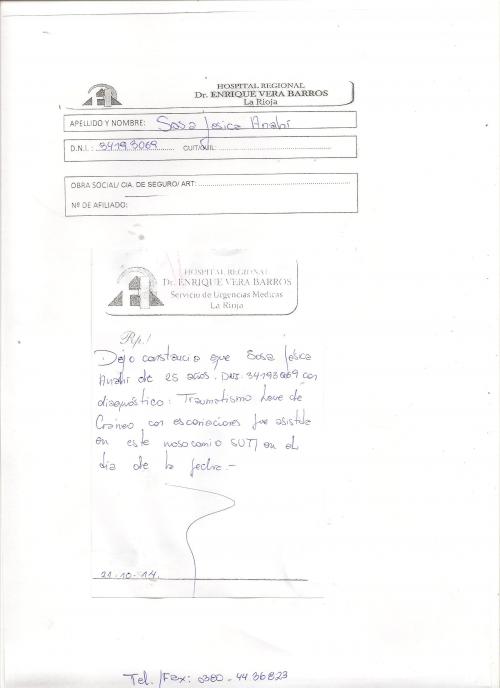 HOSPITAL REGIONAL
Dr. ENRIQUE VERA BARROS
La Rioja
APELLIDO Y NOMBRE: Sosa Jesica Anahí
D.N.I.: 34193069 CUIT/CUIL:
OBRA SOCIAL/ CIA. DE SEGURO/ ART:
Nº DE AFILIADO:
HOSPITAL REGIONAL
Dr. ENRIQUE VERA BARROS
Servicio de Urgencias Medicas
La Rioja
Rp./
Dejo constancia que Sosa Jesica
Anahí de 25 años. DNI. 34193069 con
diagnóstico: Traumatismo Leve de
Craneo con escoriaciones fue asistida
en este nosocomio en el
día de la fecha.-
21-10-14.
Tel./Fax: 0380-4436823